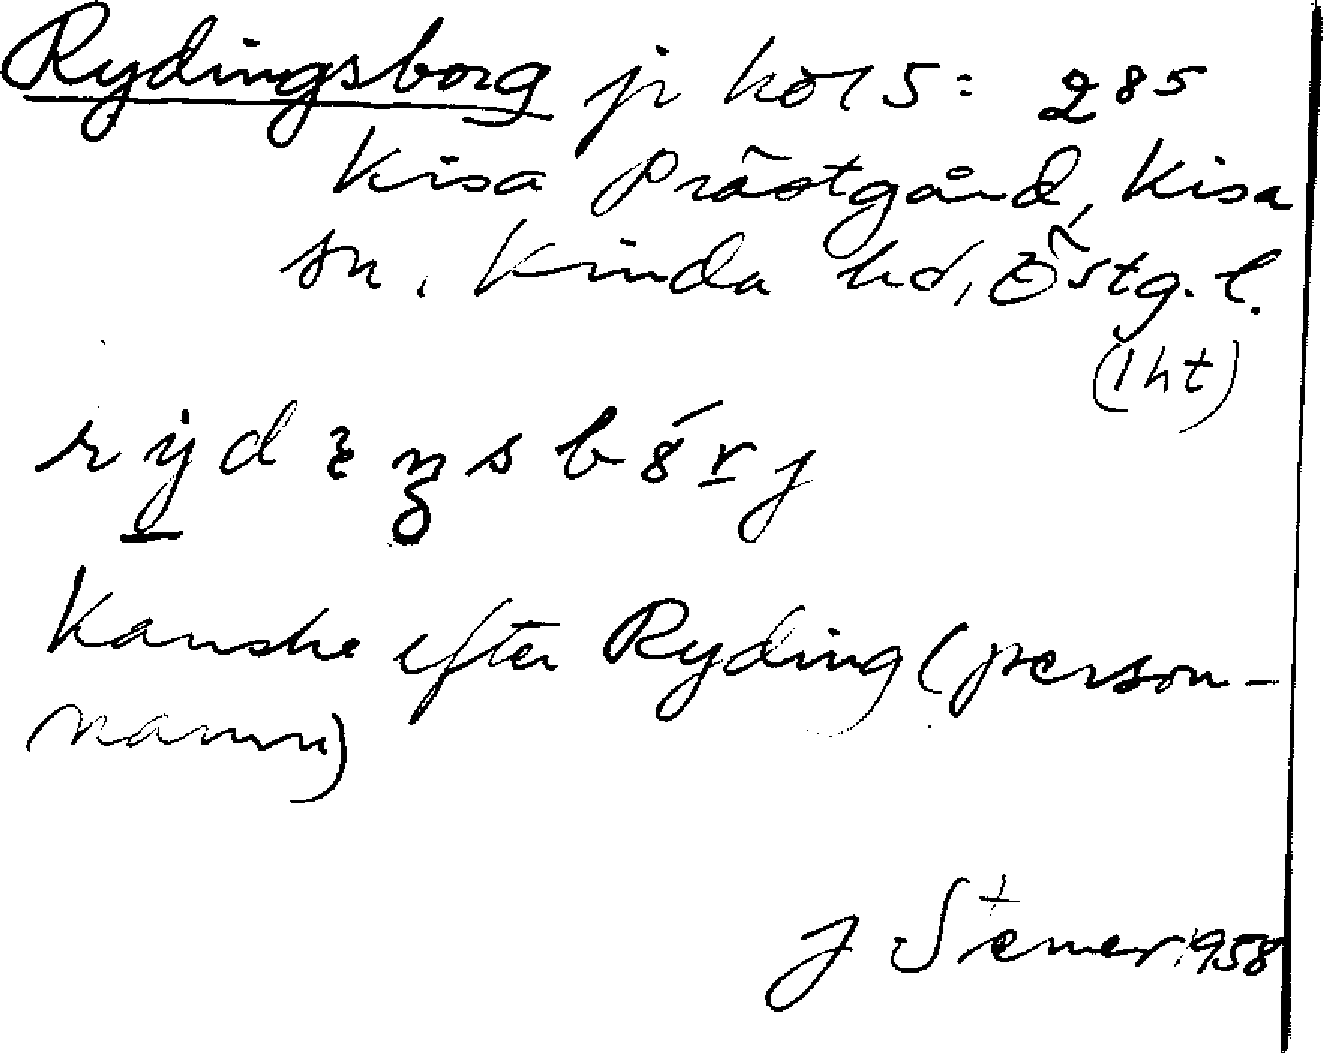 Rydingsborg jr ko 15: 285
Kisa Prästgård, Kisa
sn, Kinda hd, Östg. l.
(lht)
Kanske efter Ryding (person-
namn)
J Stener 1958